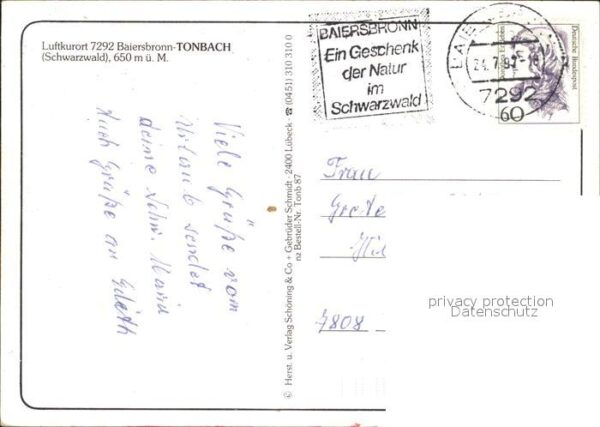 Luftkurort 7292 Baiersbronn-TONBACH
(Schwarzwald), 650 m ü. M.
Viele Grüße vom
Urlaub sendet
deine Schw. Maria
Auch Grüße an
© Herst. u. Verlag Schöning & Co + Gebrüder Schmidt · 2400 Lübeck · ☎ (0451) 310 310 0
nz Bestell-Nr. Tonb 87
BAIERSBRONN
Ein Geschenk
der Natur
im
Schwarzwald
7292
60
Deutsche Bundespost
Frau
Grete
7808
privacy protection
Datenschutz